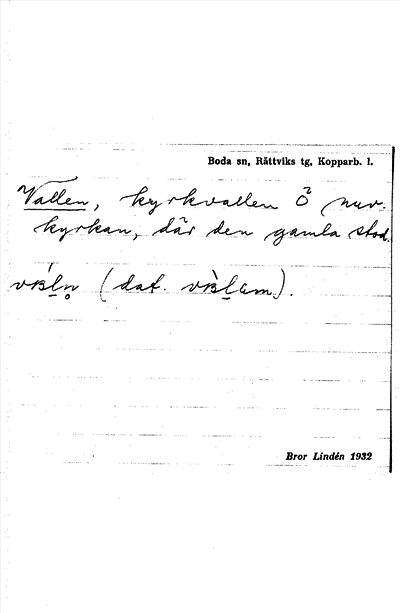 Boda sn, Rättviks tg, Kopparb. l.
Vallen, kyrkvallen Ö nuv.
kyrkan, där den gamla stod.
(dat.
Bror Lindén 1932